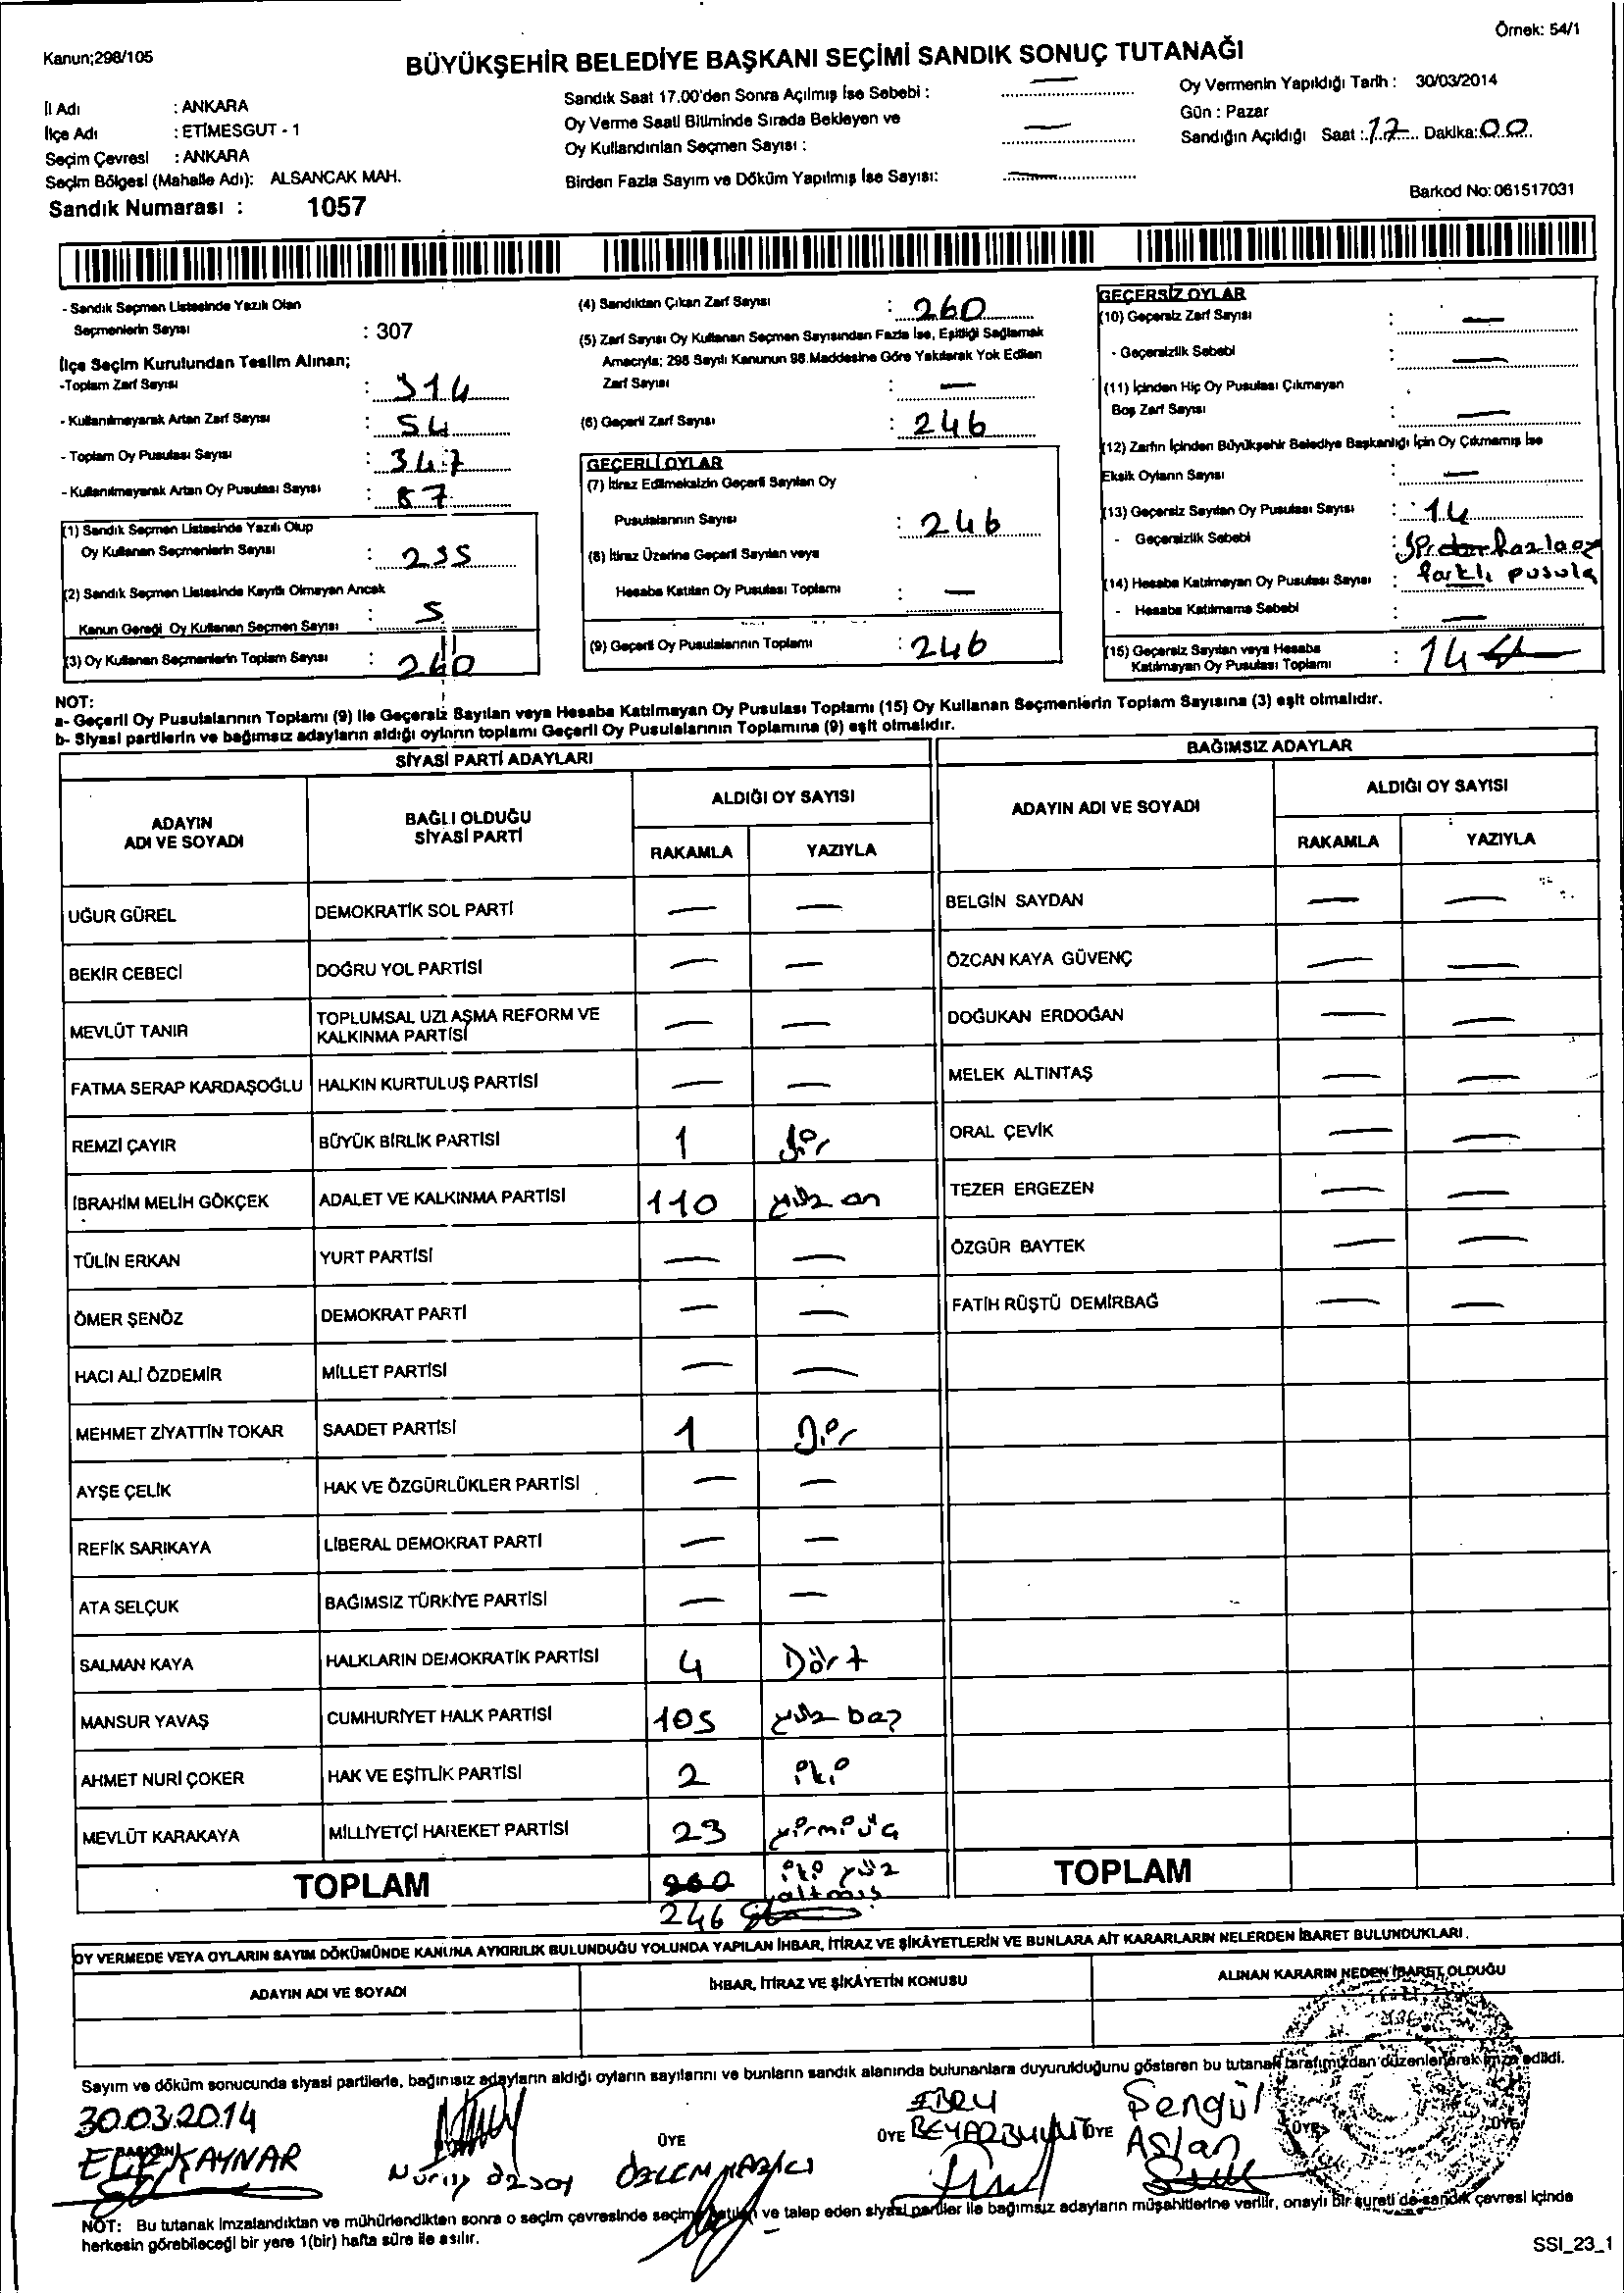 Örnek: 54/1
Kanun;298/105
BÜYÜKŞEHİR BELEDİYE BAŞKANI SEÇİMİ SANDIK SONUÇ TUTANAĞI
İl Adı : ANKARA
İlçe Adı : ETİMESGUT - 1
Seçim Çevresi : ANKARA
Seçim Bölgesi (Mahalle Adı): ALSANCAK MAH.
Sandık Numarası : 1057
Sandık Saat 17.00'den Sonra Açılmış İse Sebebi : —
Oy Verme Saati Bitiminde Sırada Bekleyen ve
Oy Kullandırılan Seçmen Sayısı : —
Birden Fazla Sayım ve Döküm Yapılmış İse Sayısı: —
Oy Vermenin Yapıldığı Tarih : 30/03/2014
Gün : Pazar
Sandığın Açıldığı Saat : 17 Dakika: 00
Barkod No: 061517031
- Sandık Seçmen Listesinde Yazılı Olan
Seçmenlerin Sayısı : 307
İlçe Seçim Kurulundan Teslim Alınan;
-Toplam Zarf Sayısı : 314
- Kullanılmayarak Artan Zarf Sayısı : 54
- Toplam Oy Pusulası Sayısı : 347
- Kullanılmayarak Artan Oy Pusulası Sayısı : 87
(1) Sandık Seçmen Listesinde Yazılı Olup
Oy Kullanan Seçmenlerin Sayısı : 255
(2) Sandık Seçmen Listesinde Kayıtlı Olmayan Ancak
Kanun Gereği Oy Kullanan Seçmen Sayısı : 5
(3) Oy Kullanan Seçmenlerin Toplam Sayısı : 260
(4) Sandıktan Çıkan Zarf Sayısı : 260
(5) Zarf Sayısı Oy Kullanan Seçmen Sayısından Fazla İse, Eşitliği Sağlamak
Amacıyla; 298 Sayılı Kanunun 98.Maddesine Göre Yakılarak Yok Edilen
Zarf Sayısı : —
(6) Geçerli Zarf Sayısı : 246
GEÇERLİ OYLAR
(7) İtiraz Edilmeksizin Geçerli Sayılan Oy
Pusulalarının Sayısı : 246
(8) İtiraz Üzerine Geçerli Sayılan veya
Hesaba Katılan Oy Pusulası Toplamı : —
(9) Geçerli Oy Pusulalarının Toplamı : 246
GEÇERSİZ OYLAR
(10) Geçersiz Zarf Sayısı : —
- Geçersizlik Sebebi : —
(11) İçinden Hiç Oy Pusulası Çıkmayan
Boş Zarf Sayısı : —
(12) Zarfın İçinden Büyükşehir Belediye Başkanlığı İçin Oy Çıkmamış İse
Eksik Oyların Sayısı : —
(13) Geçersiz Sayılan Oy Pusulası Sayısı : 14
- Geçersizlik Sebebi :
farklı pusula
(14) Hesaba Katılmayan Oy Pusulası Sayısı :
- Hesaba Katılmama Sebebi : —
(15) Geçersiz Sayılan veya Hesaba
Katılmayan Oy Pusulası Toplamı : 14
NOT:
a- Geçerli Oy Pusulalarının Toplamı (9) ile Geçersiz Sayılan veya Hesaba Katılmayan Oy Pusulası Toplamı (15) Oy Kullanan Seçmenlerin Toplam Sayısına (3) eşit olmalıdır.
b- Siyasi partilerin ve bağımsız adayların aldığı oyların toplamı Geçerli Oy Pusulalarının Toplamına (9) eşit olmalıdır.
SİYASİ PARTİ ADAYLARI
ADAYIN ADI VE SOYADI
BAĞLI OLDUĞU SİYASİ PARTİ
ALDIĞI OY SAYISI
RAKAMLA YAZIYLA
UĞUR GÜREL DEMOKRATİK SOL PARTİ — —
BEKİR CEBECİ DOĞRU YOL PARTİSİ — —
MEVLÜT TANIR TOPLUMSAL UZLAŞMA REFORM VE KALKINMA PARTİSİ — —
FATMA SERAP KARDAŞOĞLU HALKIN KURTULUŞ PARTİSİ — —
REMZİ ÇAYIR BÜYÜK BİRLİK PARTİSİ 1 Bir
İBRAHİM MELİH GÖKÇEK ADALET VE KALKINMA PARTİSİ 110 yüz on
TÜLİN ERKAN YURT PARTİSİ — —
ÖMER ŞENÖZ DEMOKRAT PARTİ — —
HACI ALİ ÖZDEMİR MİLLET PARTİSİ — —
MEHMET ZİYATTİN TOKAR SAADET PARTİSİ 1 Bir
AYŞE ÇELİK HAK VE ÖZGÜRLÜKLER PARTİSİ — —
REFİK SARIKAYA LİBERAL DEMOKRAT PARTİ — —
ATA SELÇUK BAĞIMSIZ TÜRKİYE PARTİSİ — —
SALMAN KAYA HALKLARIN DEMOKRATİK PARTİSİ 4 Dört
MANSUR YAVAŞ CUMHURİYET HALK PARTİSİ 105 yüz beş
AHMET NURİ ÇOKER HAK VE EŞİTLİK PARTİSİ 2 iki
MEVLÜT KARAKAYA MİLLİYETÇİ HAREKET PARTİSİ 23 yirmi üç
TOPLAM 260 iki yüz altmış
246
BAĞIMSIZ ADAYLAR
ADAYIN ADI VE SOYADI
ALDIĞI OY SAYISI
RAKAMLA YAZIYLA
BELGİN SAYDAN — —
ÖZCAN KAYA GÜVENÇ — —
DOĞUKAN ERDOĞAN — —
MELEK ALTINTAŞ — —
ORAL ÇEVİK — —
TEZER ERGEZEN — —
ÖZGÜR BAYTEK — —
FATİH RÜŞTÜ DEMİRBAĞ — —
TOPLAM
OY VERMEDE VEYA OYLARIN SAYIM DÖKÜMÜNDE KANUNA AYKIRILIK BULUNDUĞU YOLUNDA YAPILAN İHBAR, İTİRAZ VE ŞİKÂYETLERİN VE BUNLARA AİT KARARLARIN NELERDEN İBARET BULUNDUKLARI.
ADAYIN ADI VE SOYADI
İHBAR, İTİRAZ VE ŞİKÂYETİN KONUSU
ALINAN KARARIN NEDEN İBARET OLDUĞU
Sayım ve döküm sonucunda siyasi partilerle, bağımsız adayların aldığı oyların sayılarını ve bunların sandık alanında bulunanlara duyurulduğunu gösteren bu tutanak tarafımızdan düzenlenerek imza edildi.
30.03.2014
BAŞKAN
ELİF KAYNAR
Nuray Özsoy
ÜYE
ÖZLEM
ÜYE
EBRU
ÜYE
Şengül
Aslan
ÜYE
ÜYE
NOT: Bu tutanak imzalandıktan ve mühürlendikten sonra o seçim çevresinde seçime katılan ve talep eden siyasi partiler ile bağımsız adayların müşahitlerine verilir, onaylı bir sureti de sandık çevresi içinde
herkesin görebileceği bir yere 1(bir) hafta süre ile asılır.
SSI_23_1